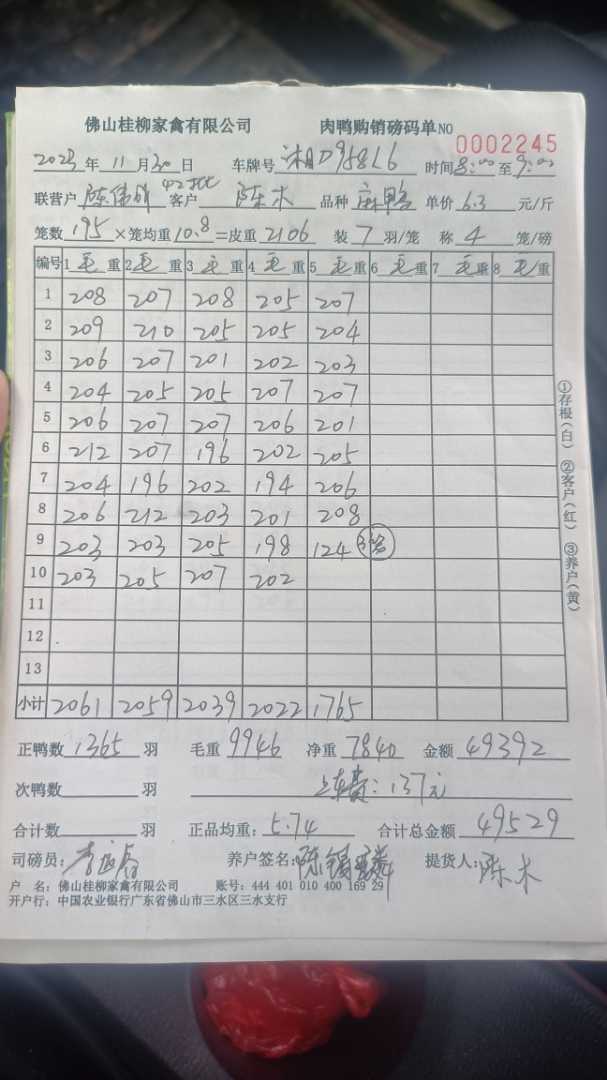 佛山桂柳家禽有限公司 肉鸭购销磅码单NO 0002245
2023年 11月30日 车牌号 湘D958L6 时间8:00至9:00
联营户 客户 陈木 品种 麻鸭 单价 6.3 元/斤
笼数 195 ×笼均重 10.8 =皮重 2106 装 7 羽/笼 称 4 笼/磅
编号 1 毛 重 2 毛 重 3 毛 重 4 毛 重 5 毛 重 6 毛 重 7 毛 重 8 毛 重
1 208 207 208 205 207
2 209 210 205 205 204
3 206 207 201 202 203
4 204 205 205 207 207
5 206 207 207 206 201
6 212 207 196 202 205
7 204 196 202 194 206
8 206 212 203 201 208
9 203 203 205 198 124
10 203 205 207 202
11
12
13
小计 2061 2059 2039 2022 1765
①存根(白) ②客户(红) ③养户(黄)
正鸭数 1365 羽 毛重 9946 净重 7840 金额 49392
次鸭数 羽 上车费:137元
合计数 羽 正品均重: 5.74 合计总金额 49529
司磅员: 养户签名: 提货人: 陈木
户 名:佛山桂柳家禽有限公司 账号:444 401 010 400 169 29
开户行:中国农业银行广东省佛山市三水区三水支行